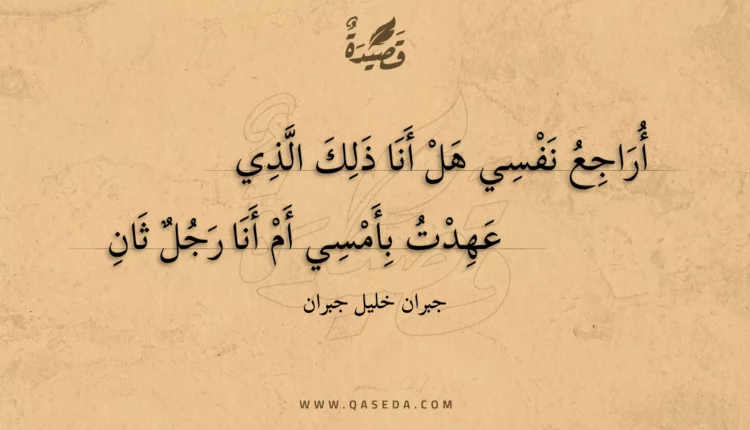 قَصِيْدَةٌ
أُرَاجِعُ نَفْسِي هَلْ أَنَا ذَلِكَ الَّذِي
عَهِدْتُ بِأَمْسِي أَمْ أَنَا رَجُلٌ ثَانِ
جبران خليل جبران
WWW.QASEDA.COM